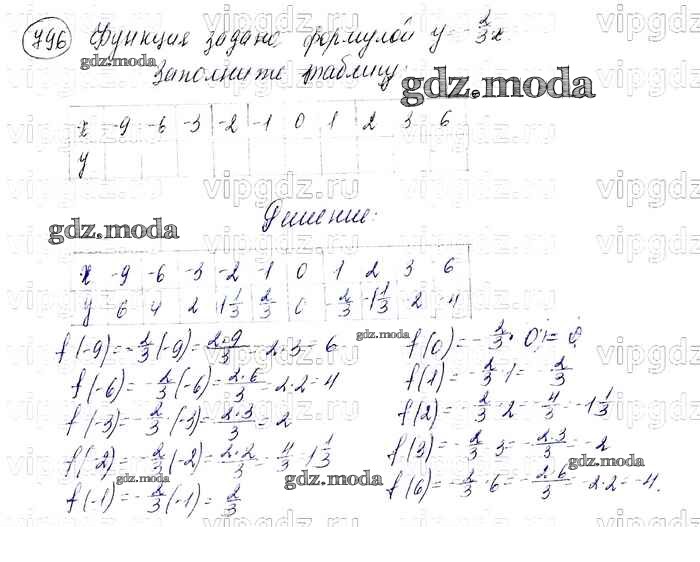 796 Функция задана формулой y = -2/3 x
Заполните таблицу:
gdz.moda
gdz.moda
x -9 -6 -3 -2 -1 0 1 2 3 6
y
Решение:
gdz.moda
x -9 -6 -3 -2 -1 0 1 2 3 6
y 6 4 2 1 1/3 2/3 0 -2/3 -1 1/3 -2 -4
f(-9) = -2/3(-9) = 2·9/3 = 2·3 = 6
f(-6) = -2/3(-6) = 2·6/3 = 2·2 = 4
f(-3) = -2/3(-3) = 2·3/3 = 2
f(-2) = -2/3(-2) = 2·2/3 = 4/3 = 1 1/3
f(-1) = -2/3(-1) = 2/3
f(0) = -2/3 · 0 = 0
f(1) = -2/3 · 1 = -2/3
f(2) = -2/3 · 2 = -4/3 = -1 1/3
f(3) = -2/3 · 3 = -2·3/3 = -2
f(6) = -2/3 · 6 = -2·6/3 = -2·2 = -4.
gdz.moda
gdz.moda
gdz.moda
gdz.moda
vipgdz.ru